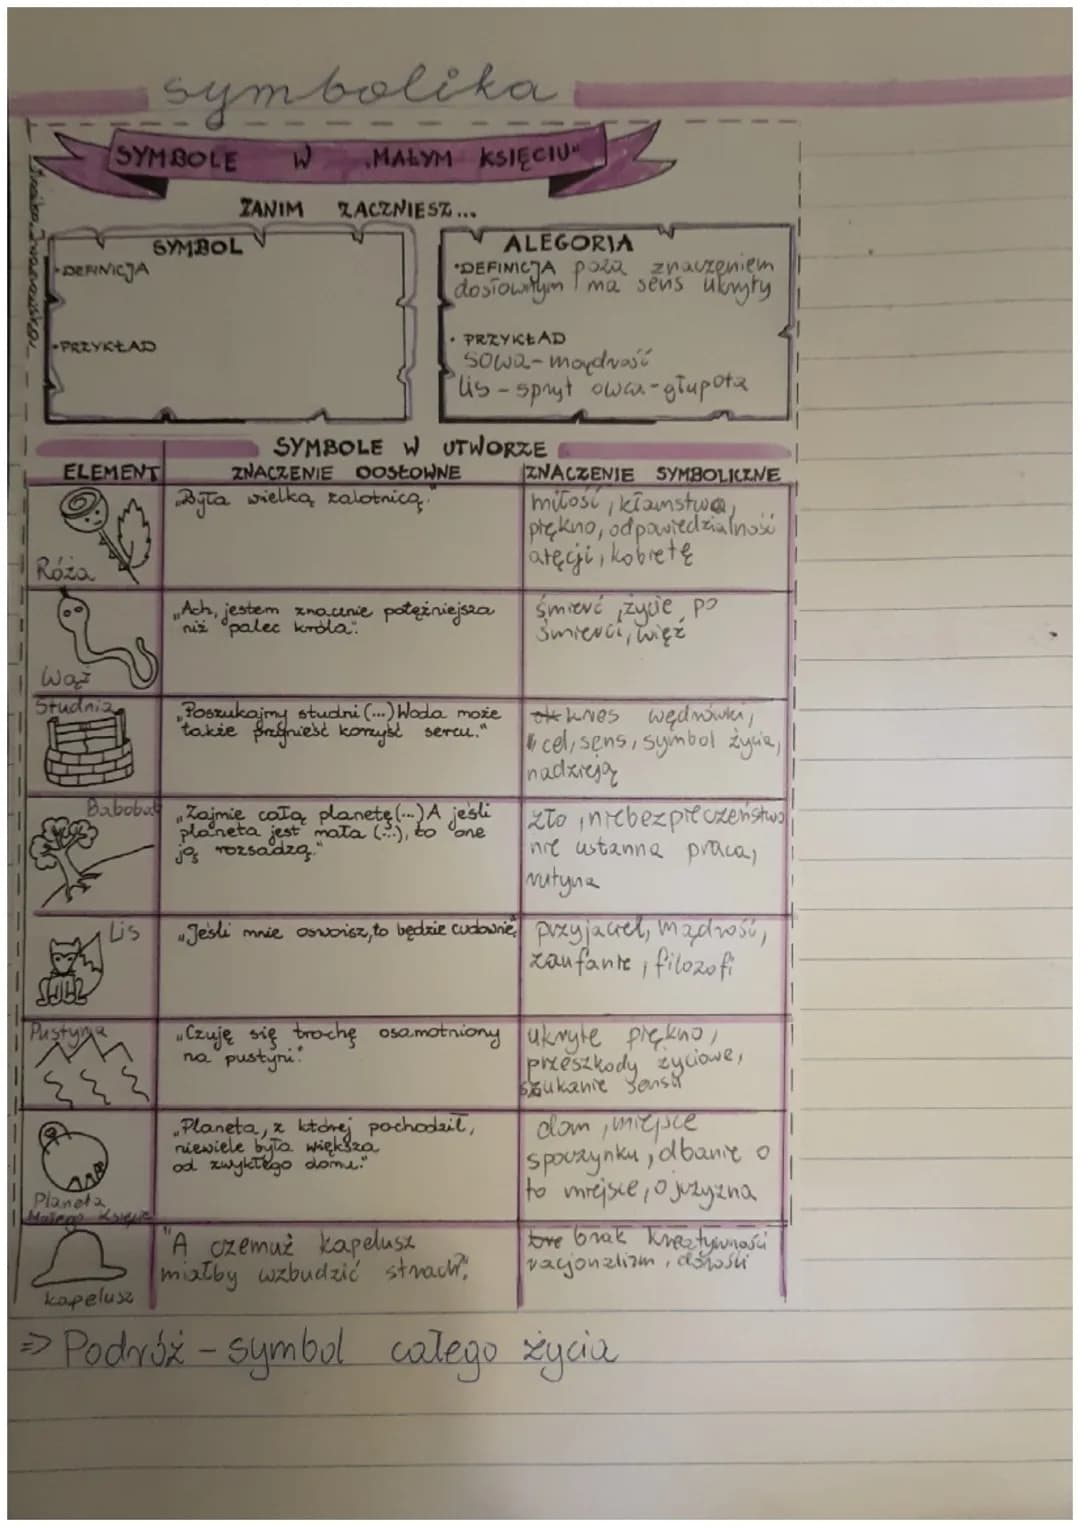 symbolika
SYMBOLE W „MAŁYM KSIĘCIU"
ZANIM ZACZNIESZ...
SYMBOL
•DEFINICJA
•PRZYKŁAD
ALEGORIA
•DEFINICJA poza znaczeniem
dosłownym ma sens ukryty
• PRZYKŁAD
sowa - mądrość
lis - spryt owca - głupota
SYMBOLE W UTWORZE
ELEMENT ZNACZENIE DOSŁOWNE ZNACZENIE SYMBOLICZNE
Róża
„Była wielką zalotnicą."
miłość, kłamstwa,
piękno, odpowiedzialność
kobietę
Wąż
„Ach, jestem znacznie potężniejsza
niż palec króla".
śmierć, życie po
śmierci, więź
Studnia
„Poszukajmy studni (...) Woda może
także przynieść korzyść sercu."
kres wędrówki,
cel, sens, symbol życia,
nadzieją
Babobab
„Zajmie całą planetę (...) A jeśli
planeta jest mała (...), to one
ją rozsadzą."
zło, niebezpieczeństwo
nie ustanna praca,
rutyna
Lis
„Jeśli mnie oswoisz, to będzie cudownie"
przyjaciel, mądrość,
zaufanie, filozofi
Pustynia
„Czuję się trochę osamotniony
na pustyni".
ukryte piękno,
przeszkody życiowe,
szukanie sensu
Planeta
Małego Księcia
„Planeta, z której pochodził,
niewiele była większa
od zwykłego domu."
dom, miejsce
spoczynku, dbanie o
to miejsce, ojczyzna
kapelusz
"A czemuż kapelusz
miałby wzbudzić strach?"
brak kreatywności
racjonalizm, dorośli
=> Podróż - symbol całego życia